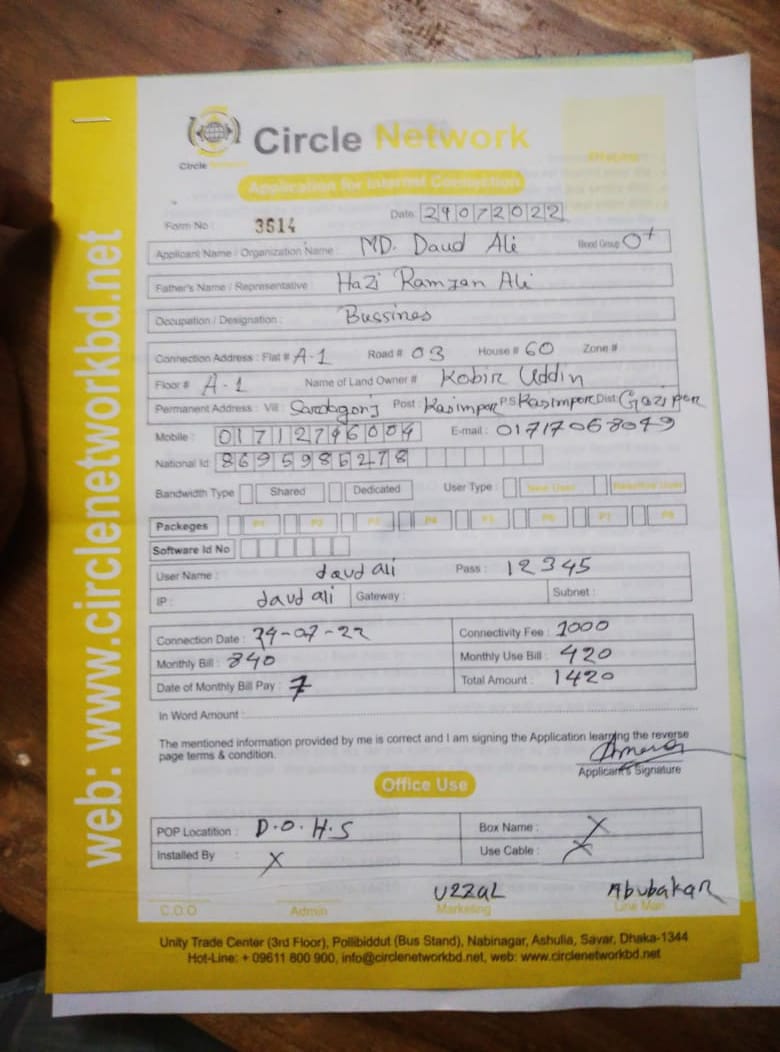 Circle Network
Circle Network
Application for Internet Connection
Photo
Date: 29072022
Form No : 3514
Applicant Name / Organization Name : MD. Daud Ali Blood Group O+
Father's Name / Representative : Hazi Ramzan Ali
Occupation / Designation : Bussines
Connection Address : Flat # A-1 Road # 03 House # 60 Zone #
Floor # A-1 Name of Land Owner # Kobir Uddin
Permanent Address : Vill : Sardagonj Post : Kasimpor P.S Kasimpor Dist: Gazipur
Mobile : 01712796004 E-mail : 01717068049
National Id: 8695986278
Bandwidth Type Shared Dedicated User Type : New User Reactive User
Packeges P1 P2 P3 P4 P5 P6 P7 P8
Software Id No
User Name : daud ali Pass : 12345
IP : daud ali Gateway : Subnet :
Connection Date : 29-07-22 Connectivity Fee : 1000
Monthly Bill : 840 Monthly Use Bill : 420
Date of Monthly Bill Pay : 7 Total Amount : 1420
In Word Amount :
The mentioned information provided by me is correct and I am signing the Application learning the reverse
page terms & condition.
Applicant's Signature
Office Use
POP Locatition : D.O.H.S Box Name : X
Installed By : X Use Cable : X
UZZAL Abubakar
C.O.O Admin Marketing Line Man
Unity Trade Center (3rd Floor), Pollibiddut (Bus Stand), Nabinagar, Ashulia, Savar, Dhaka-1344
Hot-Line: + 09611 800 900, info@circlenetworkbd.net, web: www.circlenetworkbd.net
web: www.circlenetworkbd.net